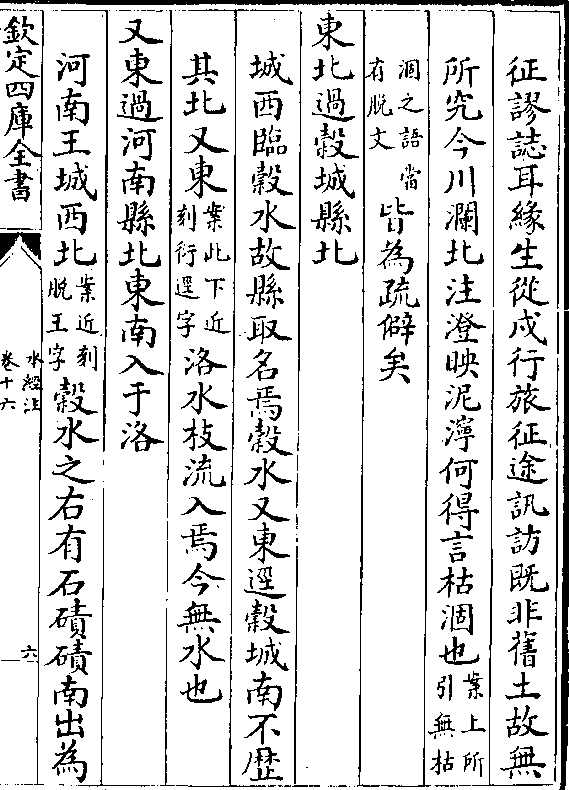 征謬誌耳緣生從戍行旅征途訊訪既非舊土故無
所究今川瀾北注澄映泥濘何得言枯涸也案上所引無枯
涸之語當有脱文皆為疏僻矣
東北過穀城縣北
城西臨穀水故縣取名焉穀水又東逕穀城南不歴
其北又東案此下近刻衍逕字洛水枝流入焉今無水也
又東過河南縣北東南入于洛
河南王城西北案近刻脱王字穀水之右有石磧磧南出為
欽定四庫全書
水經注
卷十六
六